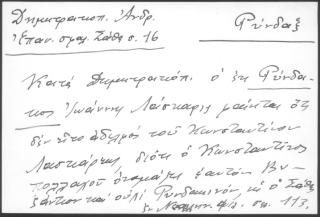 Δημητρακοπ. Ἀνδρ.
Ἐπαν. σφαλ. Σάθα σ. 16
Ρύνδαξ
Κατὰ Δημητρακόπ. ὁ ἐκ Ρύνδα-
κος Ἰωάννης Λάσκαρις φαίνεται ὅτι
δὲν ἦτο ἀδελφὸς τοῦ Κωνσταντίνου
Λασκάρεως διότι ὁ Κωνσταντῖνος
πολλαχοῦ ὀνομάζει ἑαυτὸν Βυ-
ζάντιον καὶ οὐχὶ Ρυνδακηνὸν, ὡς ὁ Σάθας
ἐν Νεοελλην. φιλ. σελ. 113.